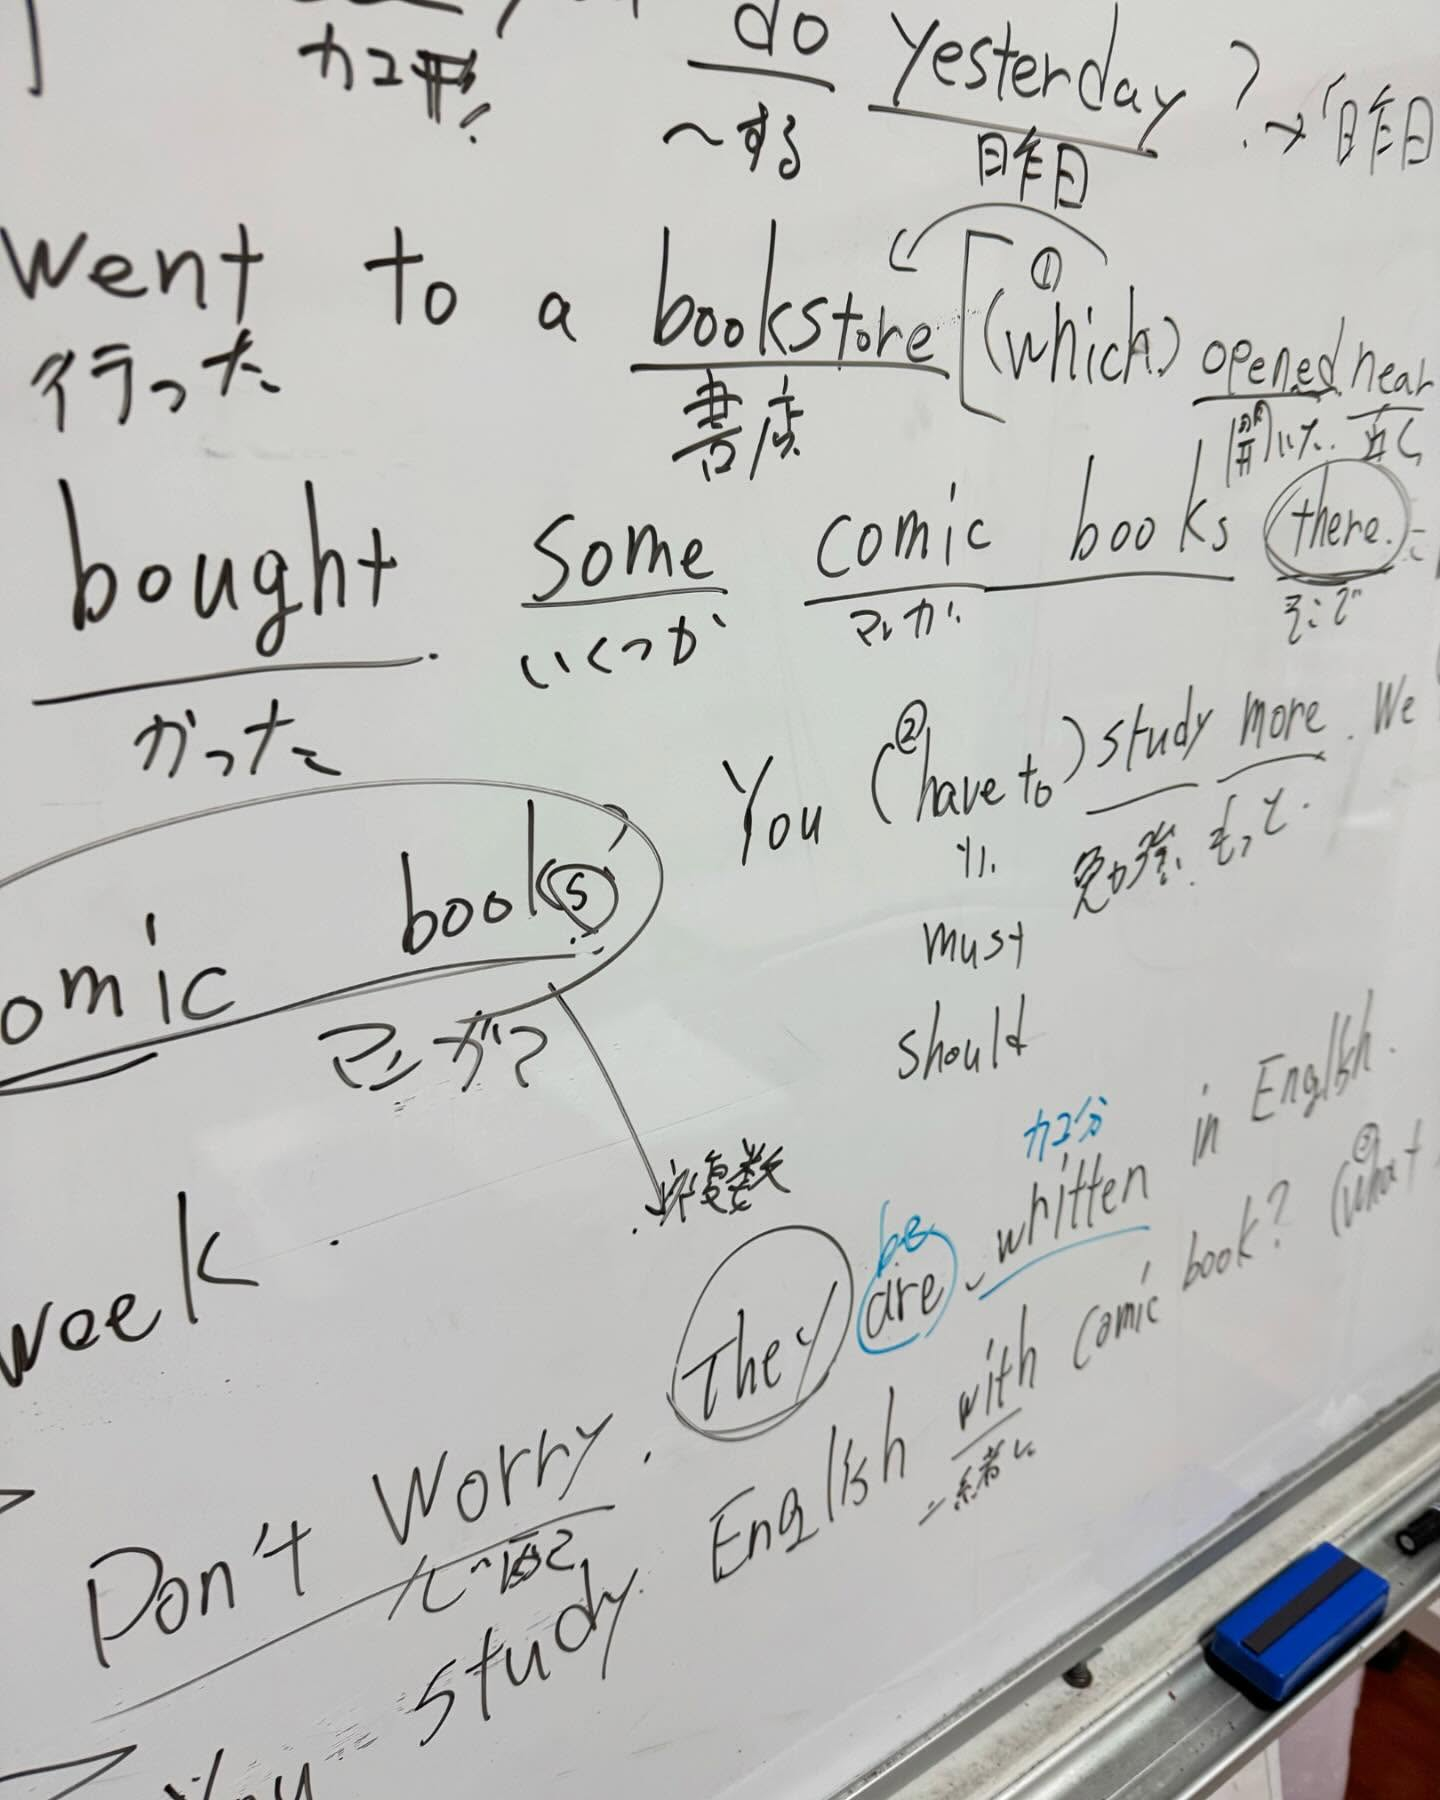 do yesterday? →「昨日
〜する 昨日
went to a bookstore [(①which) opened near
行った 書店 開いた. 近く
bought some comic books there.
かった いくつか マンガ. そこで
You (②have to) study more. We
勉強 もっと.
must
should
omic books
マンガ
複数
week.
カコ分
be
Don't worry. They are written in English.
心配
study English with comic book? (③what
一緒に
You